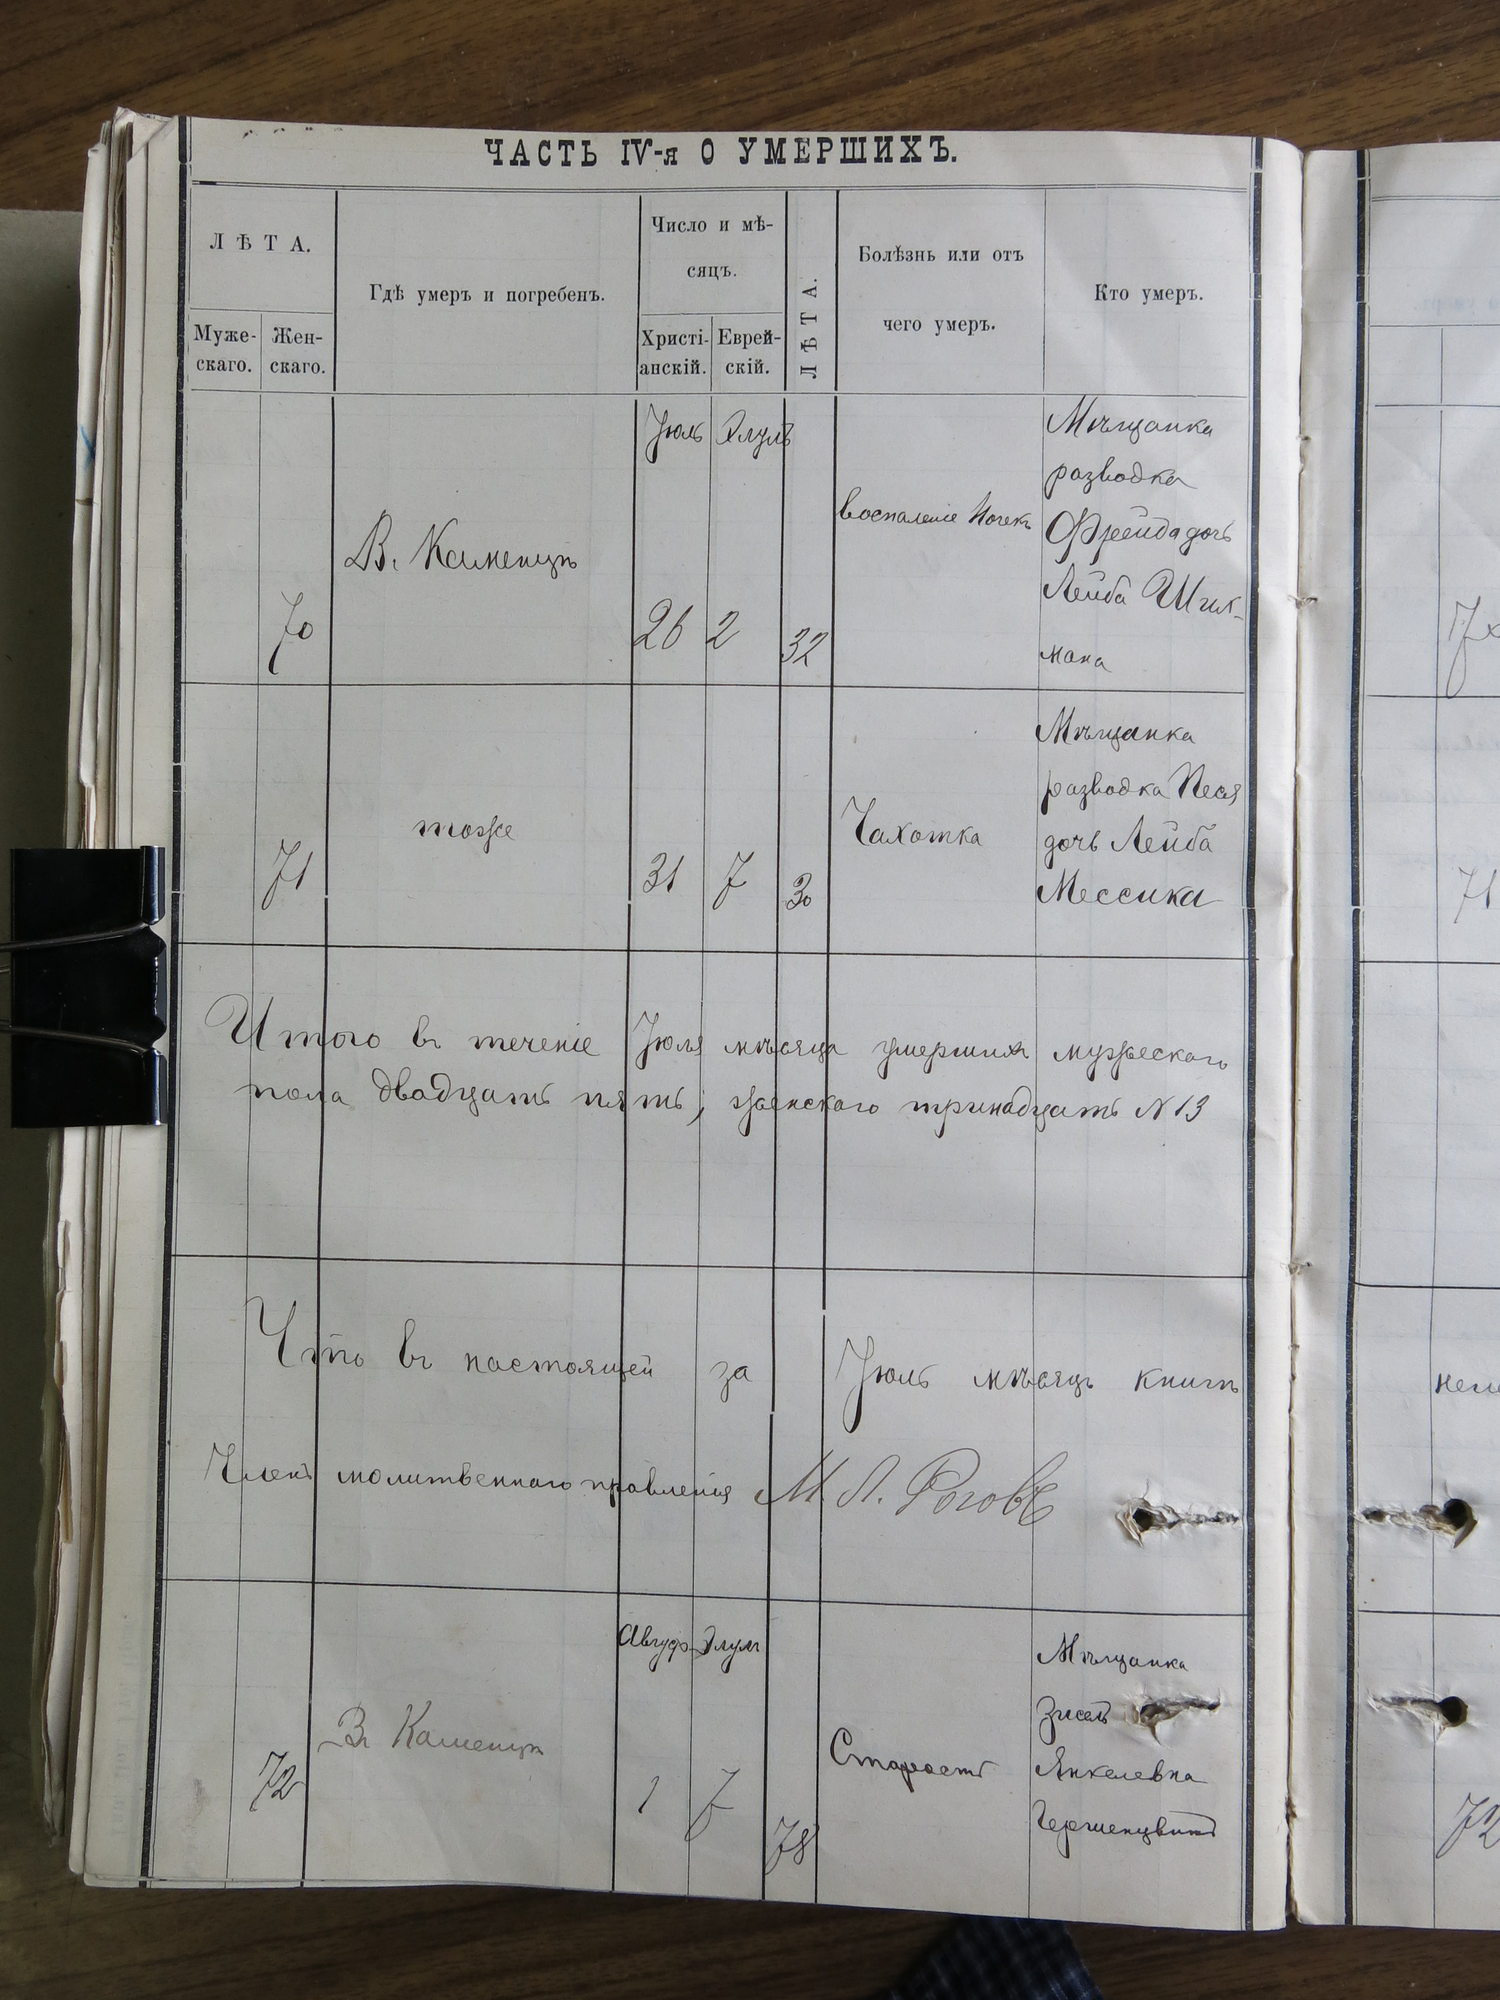 ЧАСТЬ IV-я О УМЕРШИХЪ.
ЛѢТА.
Муже-
скаго.
Жен-
скаго.
Гдѣ умеръ и погребенъ.
Число и мѣ-
сяцъ.
Христі-
анскій.
Еврей-
скій.
ЛѢТА.
Болѣзнь или отъ
чего умеръ.
Кто умеръ.
70
В. Каменцѣ
Іюль
26
Элулъ
2
32
воспаленіе почекъ
Мѣщанка
разводка
Фрейда дочь
Лейба
мана
71
тоже
31
7
30
Чахотка
Мѣщанка
разводка Песя
дочь Лейба
Мессика
Итого въ теченіе Іюля мѣсяца умершихъ мужескаго
пола двадцать пять, женскаго тринадцать N 13
Что въ настоящей за Іюль мѣсяцъ книгѣ
Членъ молитвеннаго правленія М Л. Рогов
72
Въ Каменцѣ
1
Элулъ
7
78
Старость
Мѣщанка
Зисель
Янкелевна
70
71
72